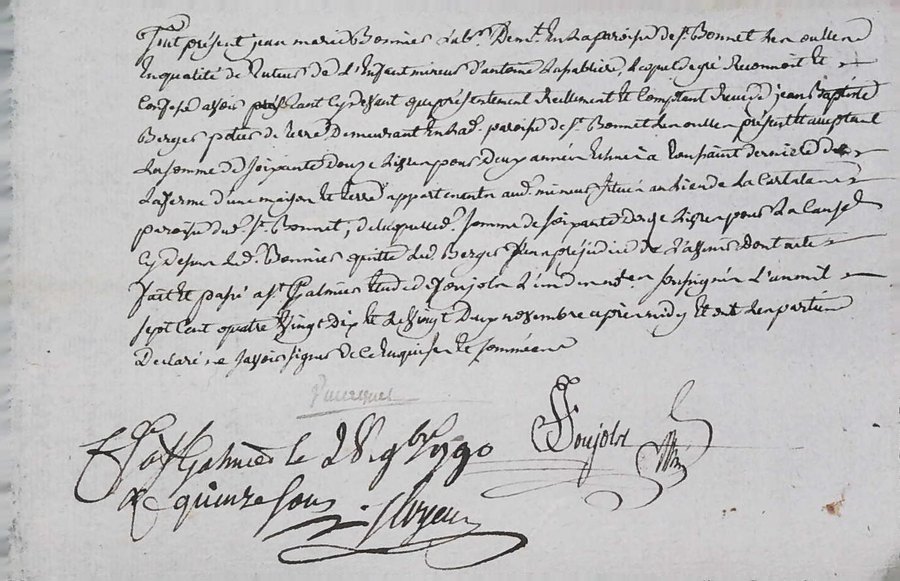 Fut présent jean marie Bonnier Labr. Demt. En La paroisse de St. Bonnet Les oulles
En qualité de Tuteur de L'Enfant mineur d'antoine Lequel de gré Reconnoit et
Confesse avoir cy devant que présentement Réellement et Comptant Receu de jean Baptiste
Berger potier de terre Demeurant En Lad. paroisse de St. Bonnet Les oulles présent et acceptant
La somme de soixante douze Livres pour deux années Echues à Toussaint dernière de
La ferme d'une maison et terre appartenants aud. mineur située au Lieu de La
paroisse dud. St. Bonnet, de Laquelle d. somme de soixante douze Livres pour La Cause
Cy dessus Led. Bonnier quitte Led. Berger sans préjudice de dont acte
fait et passé a St. Galmier Etude de Soujols L'un des notres soussignés L'an mil
sept Cent quatre Vingt Dix et Le Vingt Deux novembre après midy et ont Les parties
Déclaré ne savoir signer de Ce Enquises et sommées
Soujols
a St Galmier le 28 9bre 1790
R quinze sous